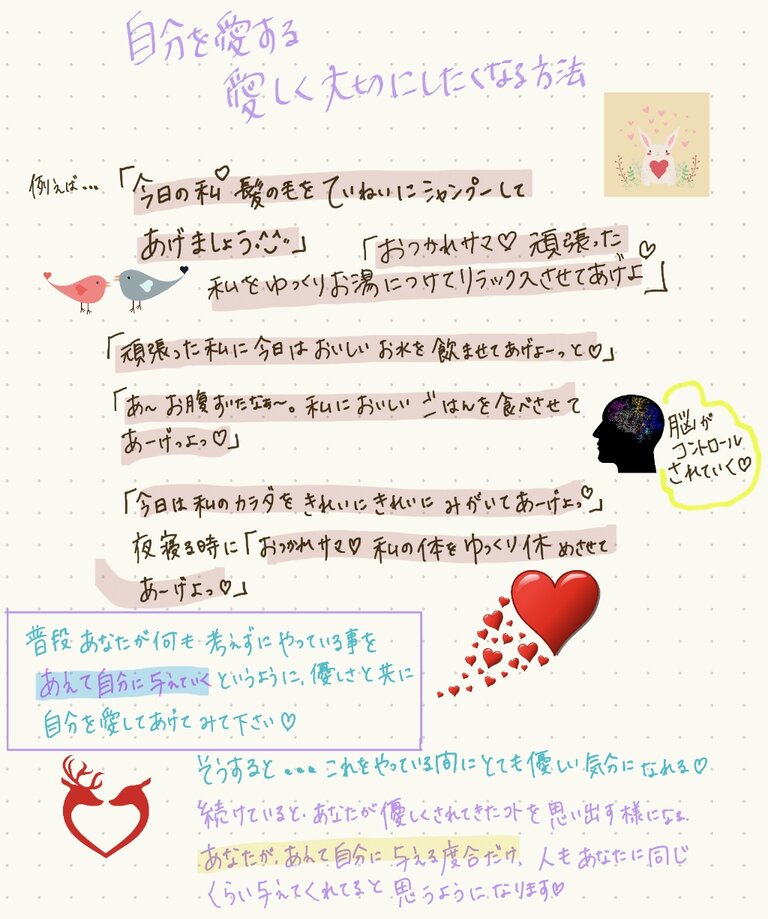 自分を愛する
愛しく大切にしたくなる方法
例えば...「今日の私♡髪の毛をていねいにシャンプーして
あげましょう◡̈」
「おつかれサマ♡ 頑張った
私をゆっくりお湯につけてリラックスさせてあげよ♡」
「頑張った私に今日はおいしいお水を飲ませてあげよーっと♡」
「あ〜お腹すいたなぁ〜。私においしいごはんを食べさせて
あーげよっ♡」
脳が
コントロール
されていく♡
「今日は私のカラダをきれいにきれいにみがいてあーげよっ♡」
夜寝る時に「おつかれサマ♡ 私の体をゆっくり休めさせて
あーげよっ♡」
普段あなたが何も考えずにやっている事を
あえて自分に与えていくというように、優しさと共に
自分を愛してあげてみて下さい♡
そうすると...これをやっている間にとても優しい気分になれる♡
続けていると、あなたが優しくされてきたコトを思い出す様になる。
あなたが、あえて自分に与える度合だけ、人もあなたに同じ
くらい与えてくれてると思うようになります♡